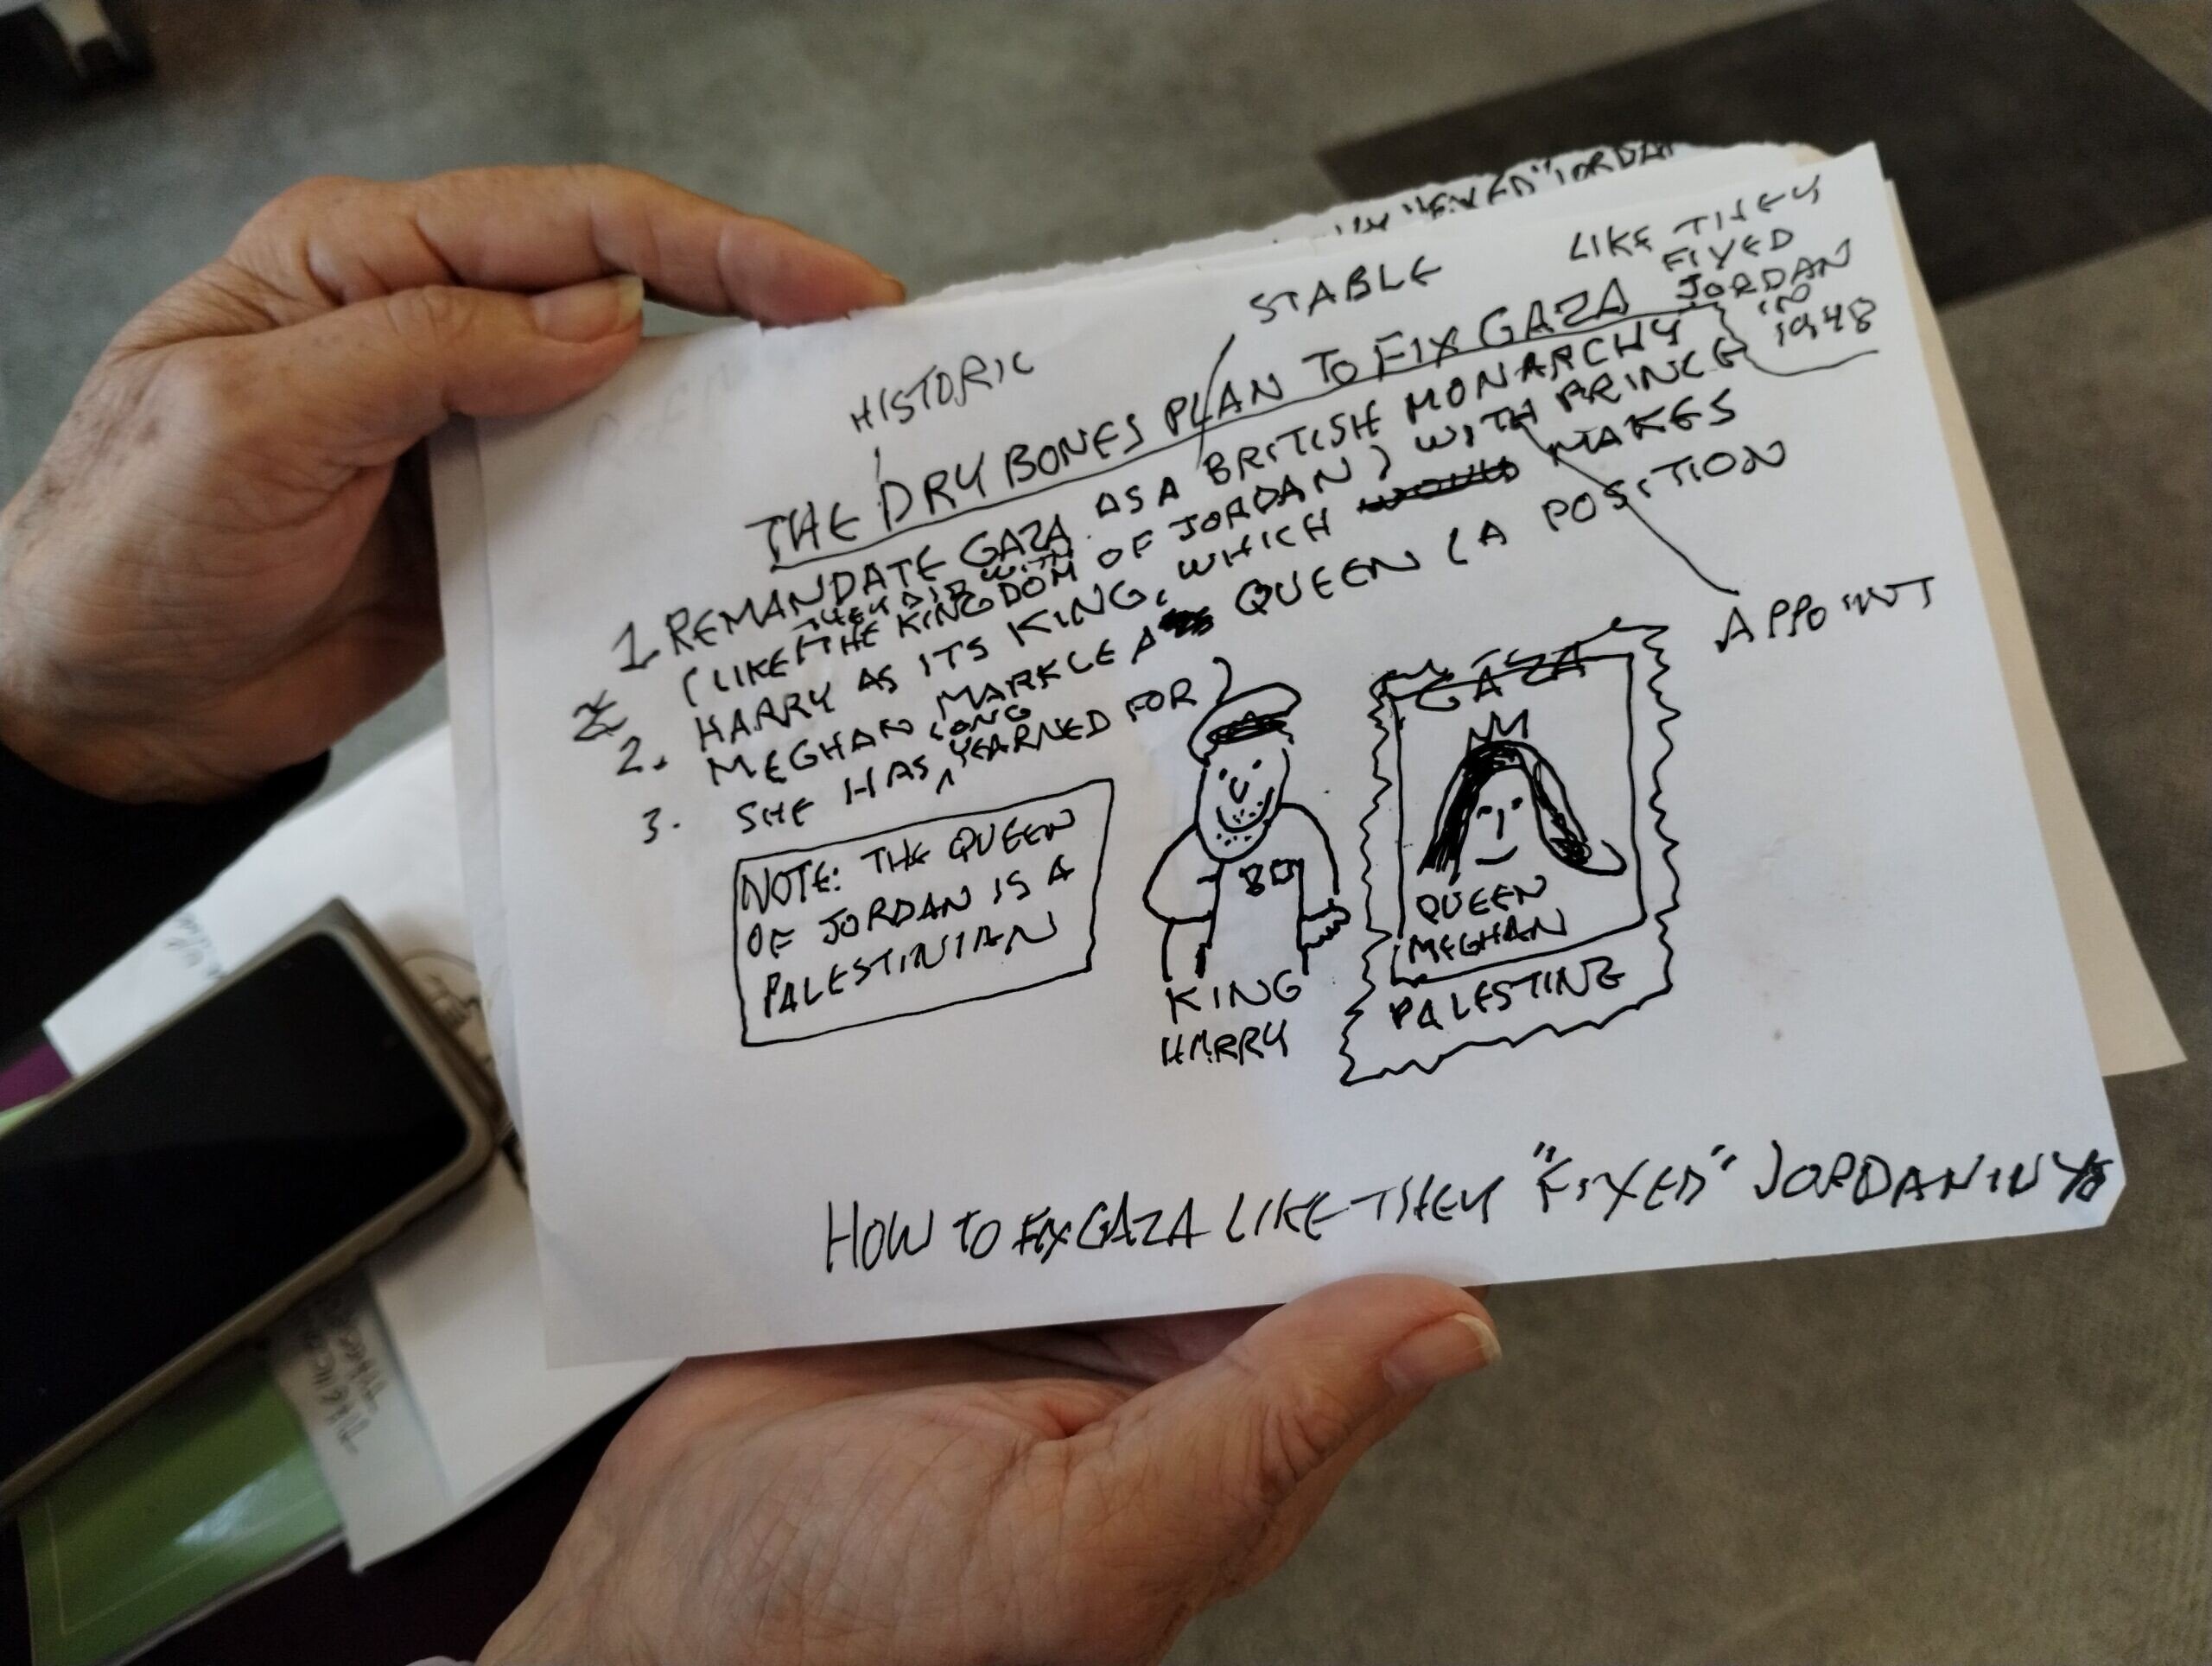 "FIXED" JORDAN
HISTORIC
STABLE
LIKE THEY
FIXED
JORDAN
IN
1948
THE DRY BONES PLAN TO FIX GAZA
1 REMANDATE GAZA AS A BRITISH MONARCHY
THEY DID WITH
(LIKE THE KINGDOM OF JORDAN) WITH PRINCE
2. HARRY AS ITS KING, WHICH WOULD MAKES
MEGHAN MARKLE A QUEEN (A POSITION
LONG
3. SHE HAS YEARNED FOR)
APPOINT
NOTE: THE QUEEN
OF JORDAN IS A
PALESTINIAN
BD
KING
HARRY
GAZA
QUEEN
MEGHAN
PALESTINE
HOW TO FIX GAZA LIKE THEY "FIXED" JORDAN IN